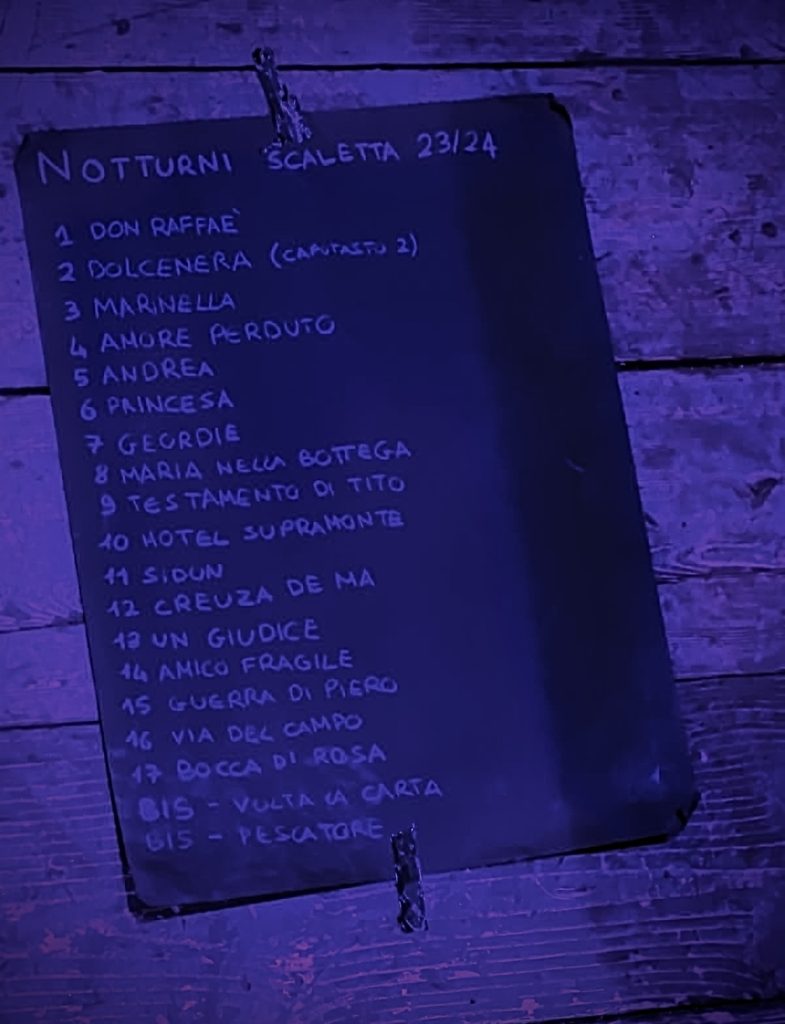 NOTTURNI SCALETTA 23/24
1 DON RAFFAE'
2 DOLCENERA (CAPOTASTO 2)
3 MARINELLA
4 AMORE PERDUTO
5 ANDREA
6 PRINCESA
7 GEORDIE
8 MARIA NELLA BOTTEGA
9 TESTAMENTO DI TITO
10 HOTEL SUPRAMONTE
11 SIDUN
12 CREUZA DE MA
13 UN GIUDICE
14 AMICO FRAGILE
15 GUERRA DI PIERO
16 VIA DEL CAMPO
17 BOCCA DI ROSA
BIS - VOLTA LA CARTA
BIS - PESCATORE